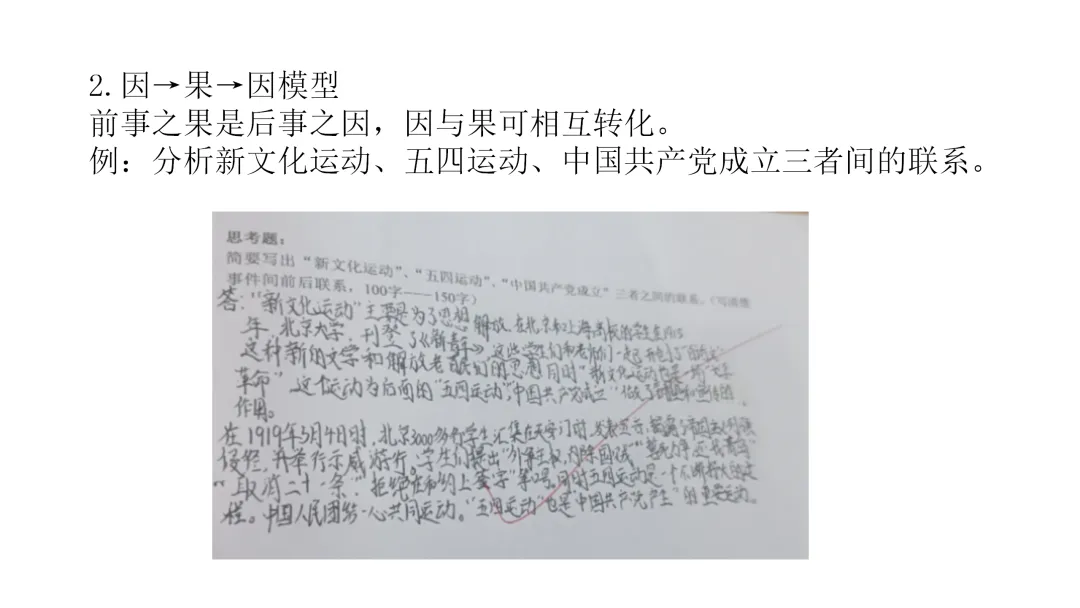 2.因→果→因模型
前事之果是后事之因，因与果可相互转化。
例：分析新文化运动、五四运动、中国共产党成立三者间的联系。
思考题：
简要写出“新文化运动”、“五四运动”、“中国共产党成立”三者之间的联系。（写清楚
事件间前后联系，100字——150字）
答：“新文化运动”主要是为了思想解放，在北京和上海
年，北京大学，刊登了《新青年》，这些学生们和老师们一起开创了
这种新的文学和解放老百姓们的思想同时“新文化运动也是一场“文学
革命”这个运动为后面的“五四运动”，“中国共产党成立”做了
作用。
在1919年5月4日时，北京3000多名学生汇集在天安门前，
侵略，并举行示威游行。学生们提出“外争主权，内除国贼”
“取消二十一条”“拒绝在和约上签字”等口号，同时五四运动是一个不断
程。中国人民团结一心共同运动。“五四运动”也是“中国共产党产生”的重要运动。